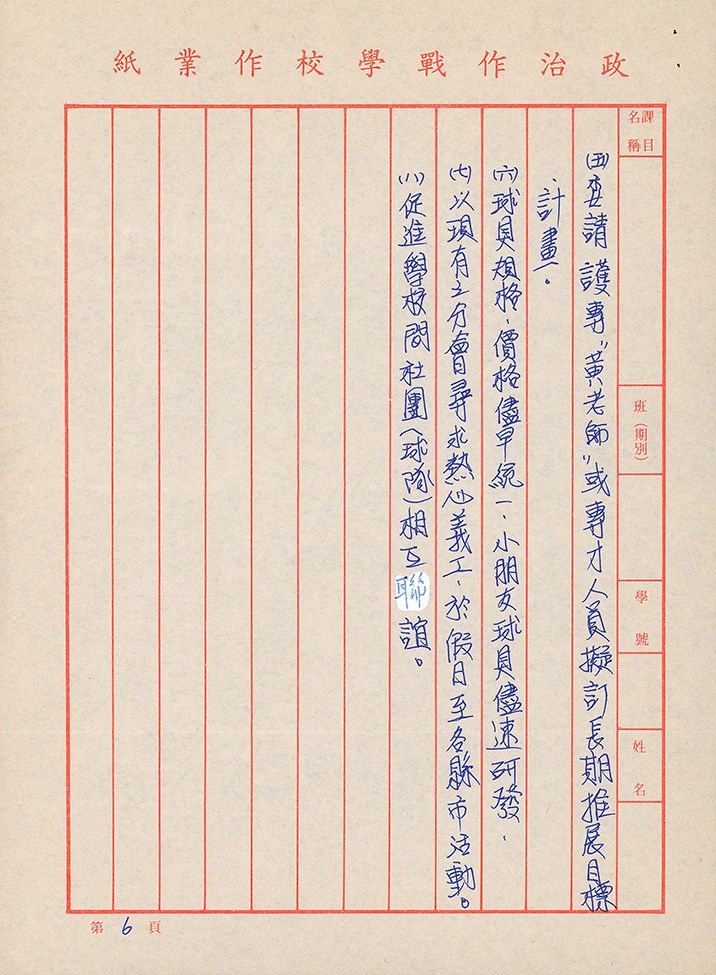 政治作戰學校作業紙
課目名稱
班(期別)
學號
姓名
(五)委請護專"黃老師"或專才人員擬訂長期推展目標
、計畫。
(六)球具規格、價格儘早統一、小朋友球具儘速研發、
(七)以現有之分會尋求熱心義工、於假日至各縣市活動。
(八)促進學校間社團(球隊)相互聯誼。
第6頁